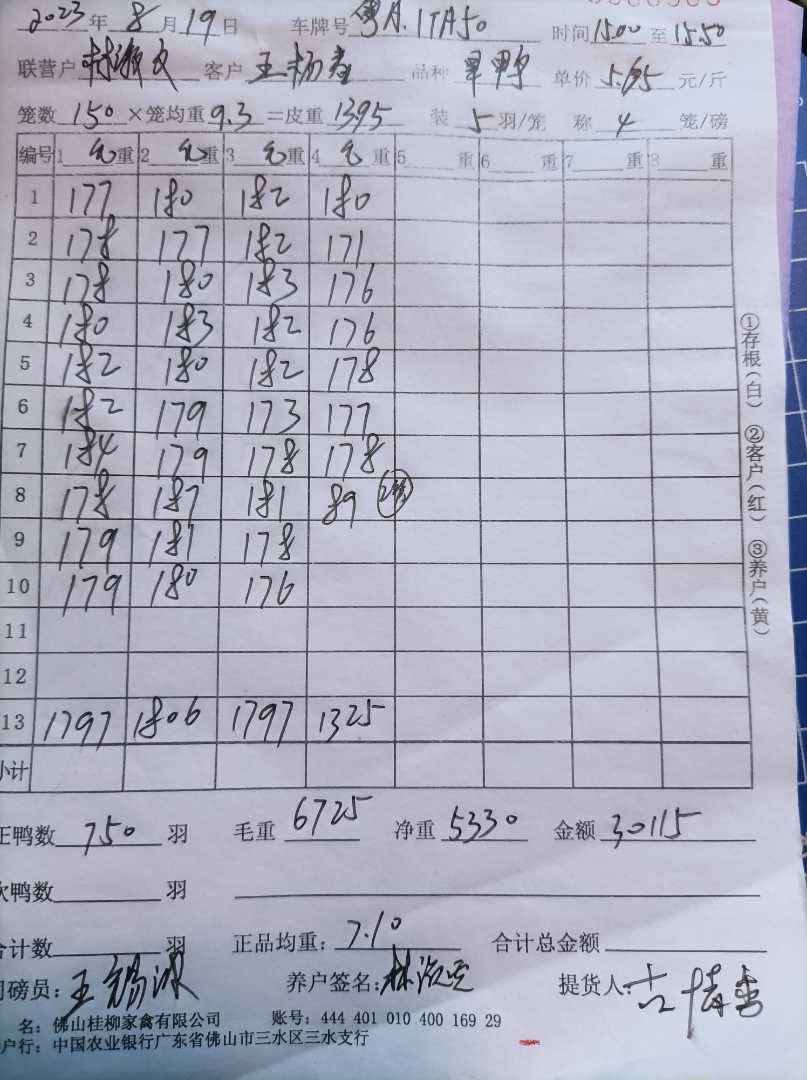 2023年8月19日 车牌号粤A.1TA50 时间15.00至15.50
联营户 林 客户 王杨 品种 单价5.65元/斤
笼数150×笼均重9.3=皮重1395 装5羽/笼 称4笼/磅
编号 1 毛重 2 毛重 3 毛重 4 毛重 5 重 6 重 7 重 8 重
1 177 180 182 180
2 178 177 182 171
3 178 180 183 176
4 180 183 182 176
5 182 180 182 178
6 182 179 173 177
7 184 179 178 178
8 178 187 181 89
9 179 181 178
10 179 180 176
11
12
13 1797 1806 1797 1325
小计
正鸭数750羽 毛重6725 净重5330 金额30115
次鸭数 羽
合计数 羽 正品均重：7.10 合计总金额
司磅员：王锡 养户签名：林 提货人：
名：佛山桂柳家禽有限公司 账号：444 401 010 400 169 29
户行：中国农业银行广东省佛山市三水区三水支行
①存根（白） ②客户（红） ③养户（黄）